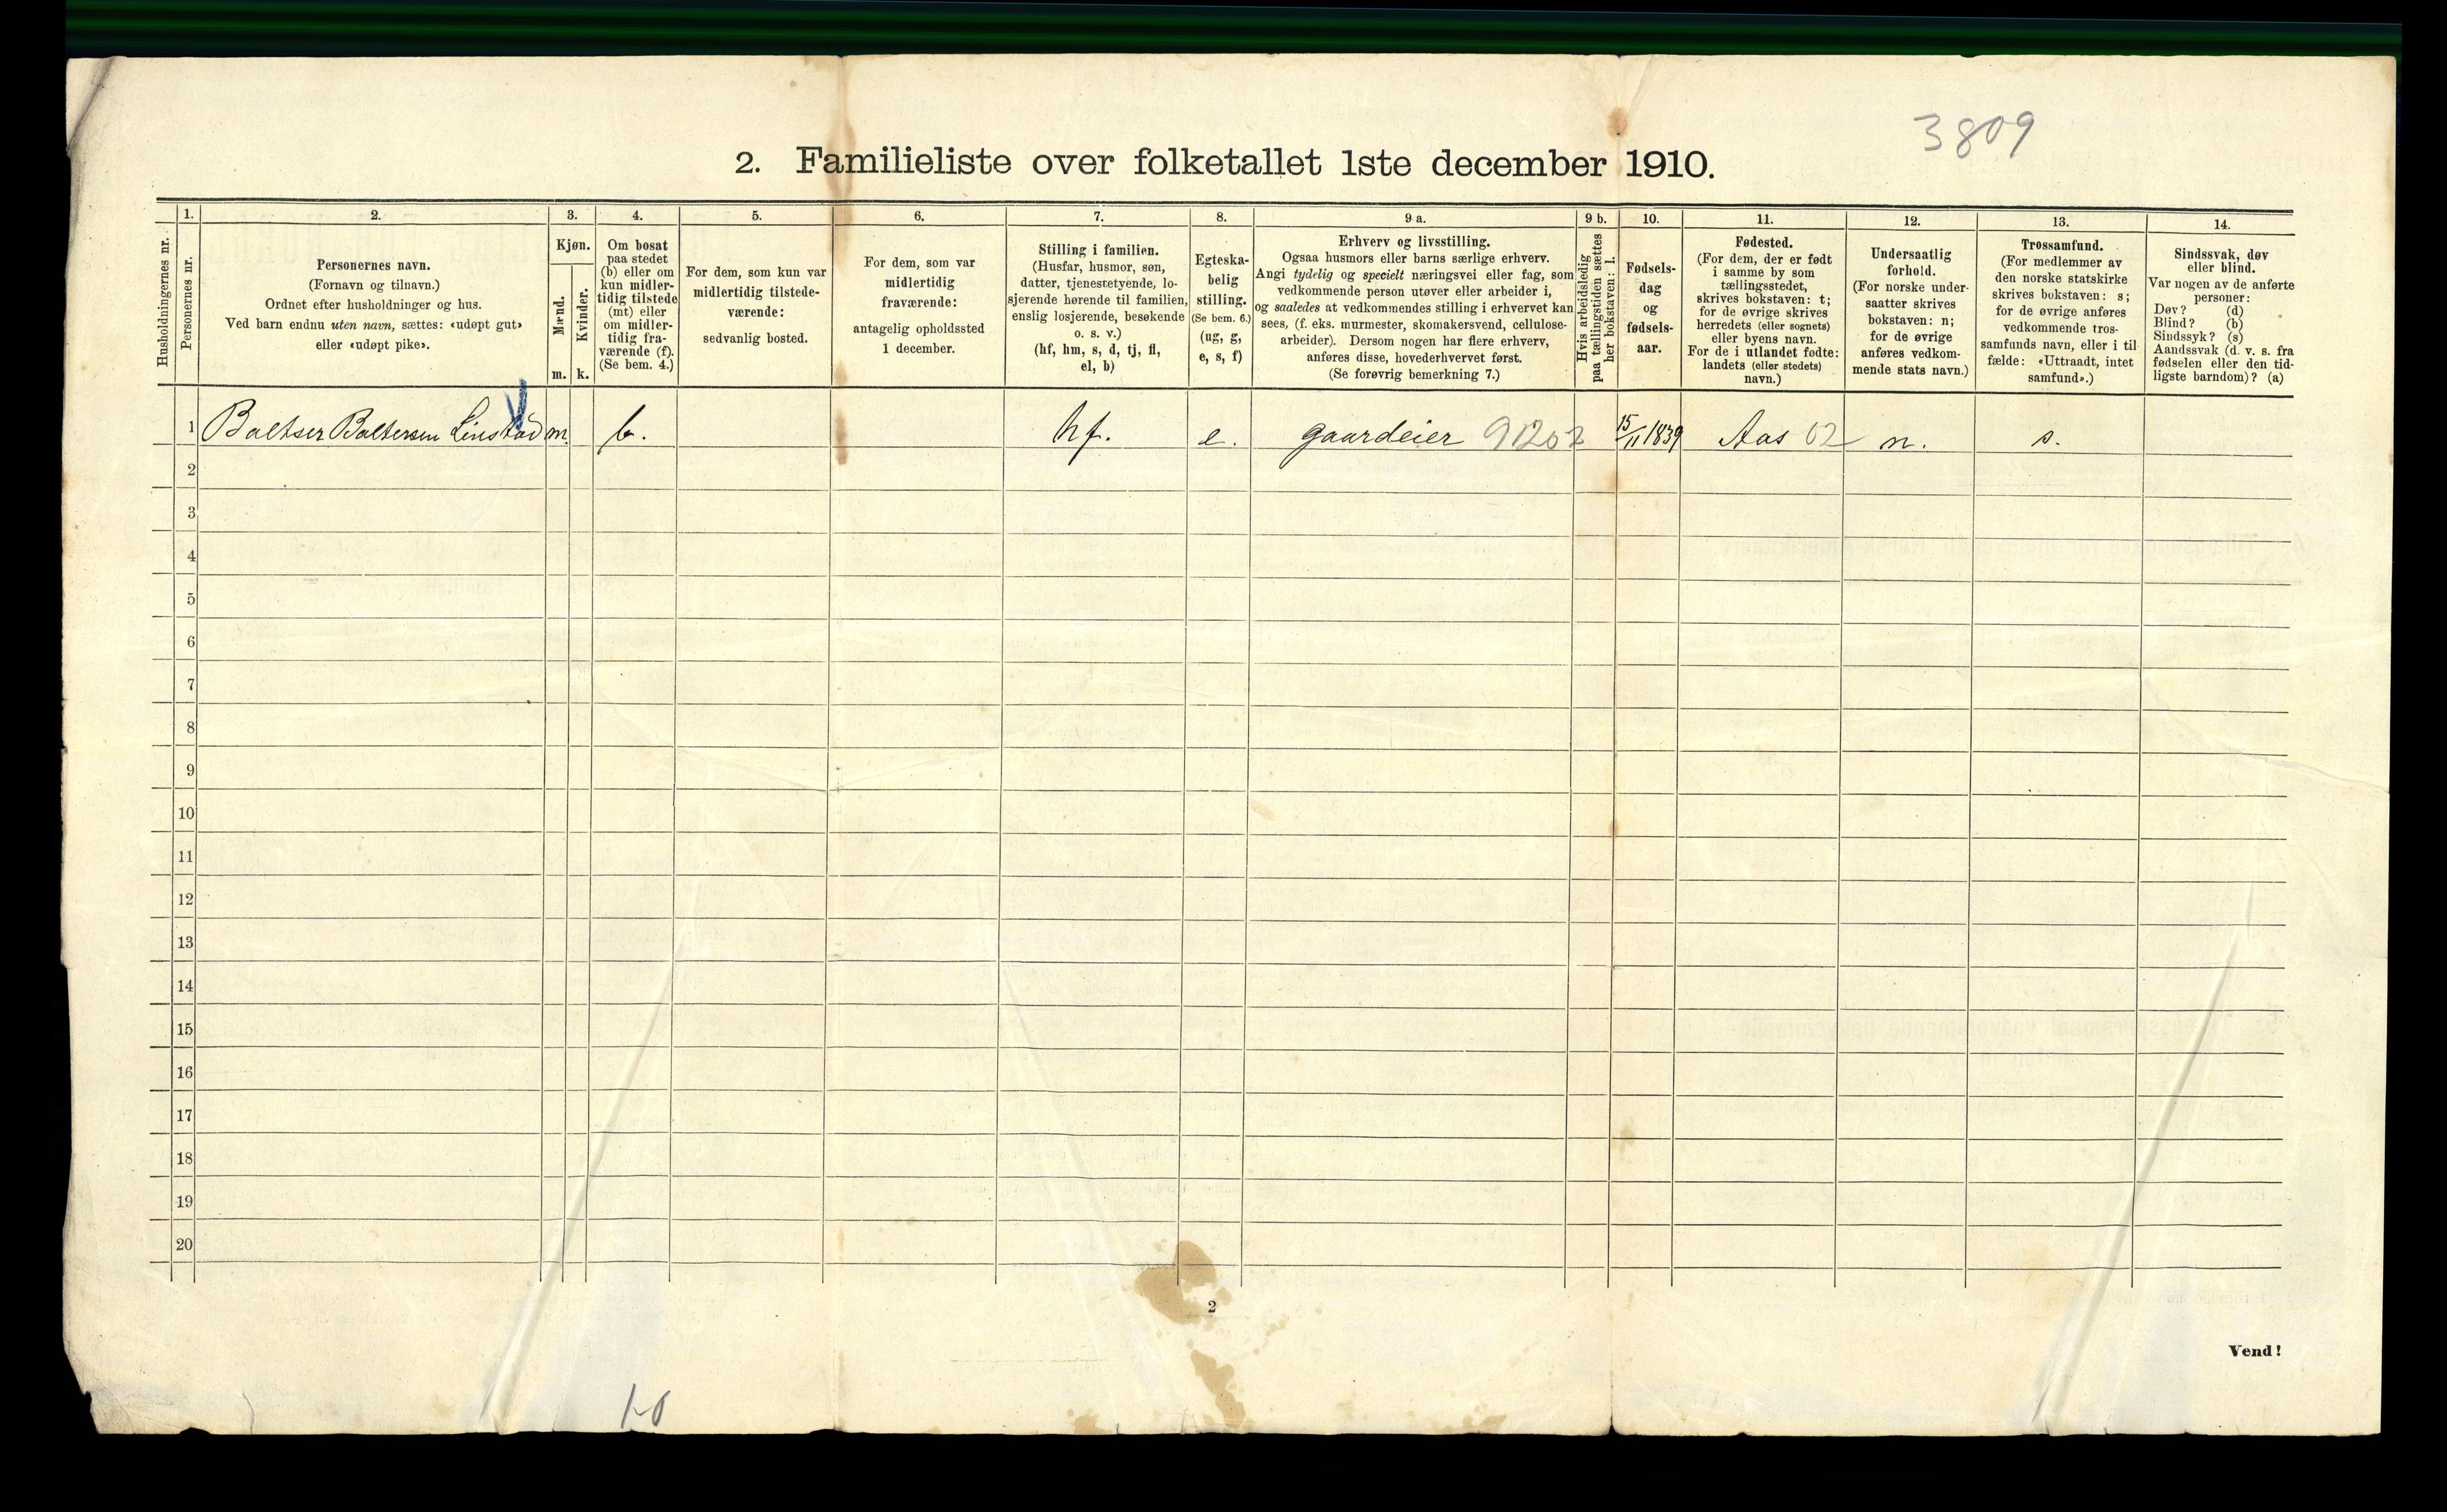 3809
2. Familieliste over folketallet 1ste december 1910.
Husholdningernes nr.
1.
Personernes nr.
2.
Personernes navn.
(Fornavn og tilnavn.)
Ordnet efter husholdninger og hus.
Ved barn endnu uten navn, sættes: «udøpt gut»
eller «udøpt pike».
3.
Kjøn.
Mænd.
Kvinder.
m.
k.
4.
Om bosat
paa stedet
(b) eller om
kun midler-
tidig tilstede
(mt) eller
om midler-
tidig fra-
værende (f).
(Se bem. 4.)
5.
For dem, som kun var
midlertidig tilstede-
værende:
sedvanlig bosted.
6.
For dem, som var
midlertidig
fraværende:
antagelig opholdssted
1 december.
7.
Stilling i familien.
(Husfar, husmor, søn,
datter, tjenestetyende, lo-
sjerende hørende til familien,
enslig losjerende, besøkende
o. s. v.)
(hf, hm, s, d, tj, fl,
el, b)
8.
Egteska-
belig
stilling.
(Se bem. 6.)
(ug, g,
e, s, f)
9 a.
Erhverv og livsstilling.
Ogsaa husmors eller barns særlige erhverv.
Angi tydelig og specielt næringsvei eller fag, som
vedkommende person utøver eller arbeider i,
og saaledes at vedkommendes stilling i erhvervet kan
sees, (f. eks. murmester, skomakersvend, cellulose-
arbeider). Dersom nogen har flere erhverv,
anføres disse, hovederhvervet først.
(Se forøvrig bemerkning 7.)
9 b.
Hvis arbeidsledig
paa tællingstiden sættes
her bokstaven: l.
10.
Fødsels-
dag
og
fødsels-
aar.
11.
Fødested.
(For dem, der er født
i samme by som
tællingsstedet,
skrives bokstaven: t;
for de øvrige skrives
herredets (eller sognets)
eller byens navn.
For de i utlandet fødte:
landets (eller stedets)
navn.)
12.
Undersaatlig
forhold.
(For norske under-
saatter skrives
bokstaven: n;
for de øvrige
anføres vedkom-
mende stats navn.)
13.
Trossamfund.
(For medlemmer av
den norske statskirke
skrives bokstaven: s;
for de øvrige anføres
vedkommende tros-
samfunds navn, eller i til-
fælde: «Uttraadt, intet
samfund».)
14.
Sindssvak, døv
eller blind.
Var nogen av de anførte
personer:
Døv? (d)
Blind? (b)
Sindssyk? (s)
Aandssvak (d. v. s. fra
fødselen eller den tid-
ligste barndom)? (a)
1 Baltser Baltersen Linstad m. b. hf. e. gaardeier 91202 15/11 1839 Aas 02 n. s.
2
3
4
5
6
7
8
9
10
11
12
13
14
15
16
17
18
19
20
2
Vend!
1-0